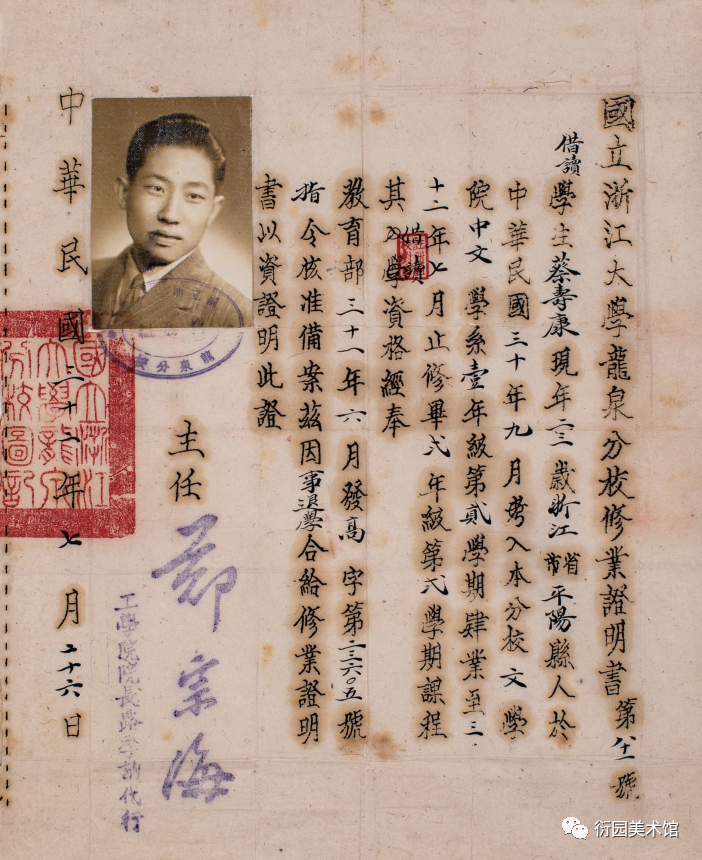 國立浙江大學龍泉分校修業證明書 第八十二號
借讀學生蔡壽康現年二三歲浙江省市平陽縣人於
中華民國三十年九月考入本分校文學
院中文學系壹年級第貳學期肄業至三
十二年七月止修畢弍年級第弍學期課程
其借讀入學資格經奉
教育部三十一年六月發高字第二三六〇五號
指令核准備案茲因事退學合給修業證明
書以資證明此證
主任
鄭宗海
工學院院長路代行
中華民國三十二年七月二十六日
國立浙江大學龍泉分校圖記
龍泉分校
衍园美术馆